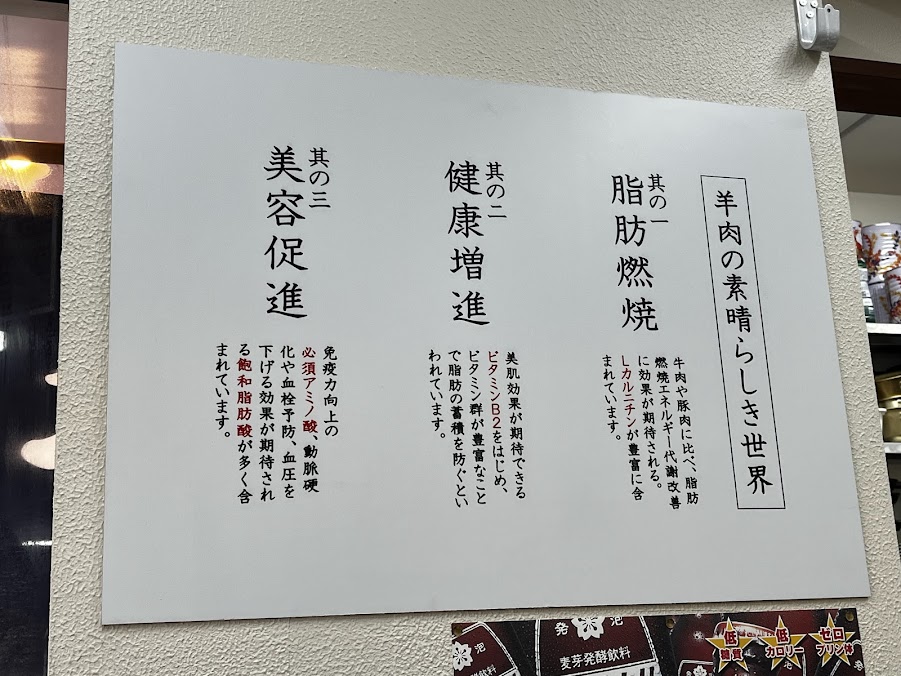 羊肉の素晴らしき世界
其の一
脂肪燃焼
牛肉や豚肉に比べ、脂肪
燃焼エネルギー代謝改善
に効果が期待される。
Lカルニチンが豊富に含
まれています。
其の二
健康増進
美肌効果が期待できる
ビタミンB2をはじめ、
ビタミン群が豊富なこと
で脂肪の蓄積を防ぐとい
われています。
其の三
美容促進
免疫力向上の
必須アミノ酸、動脈硬
化や血栓予防、血圧を
下げる効果が期待され
る飽和脂肪酸が多く含
まれています。
発泡
麦芽発酵飲料
低
糖質
低
カロリー
ゼロ
プリン体